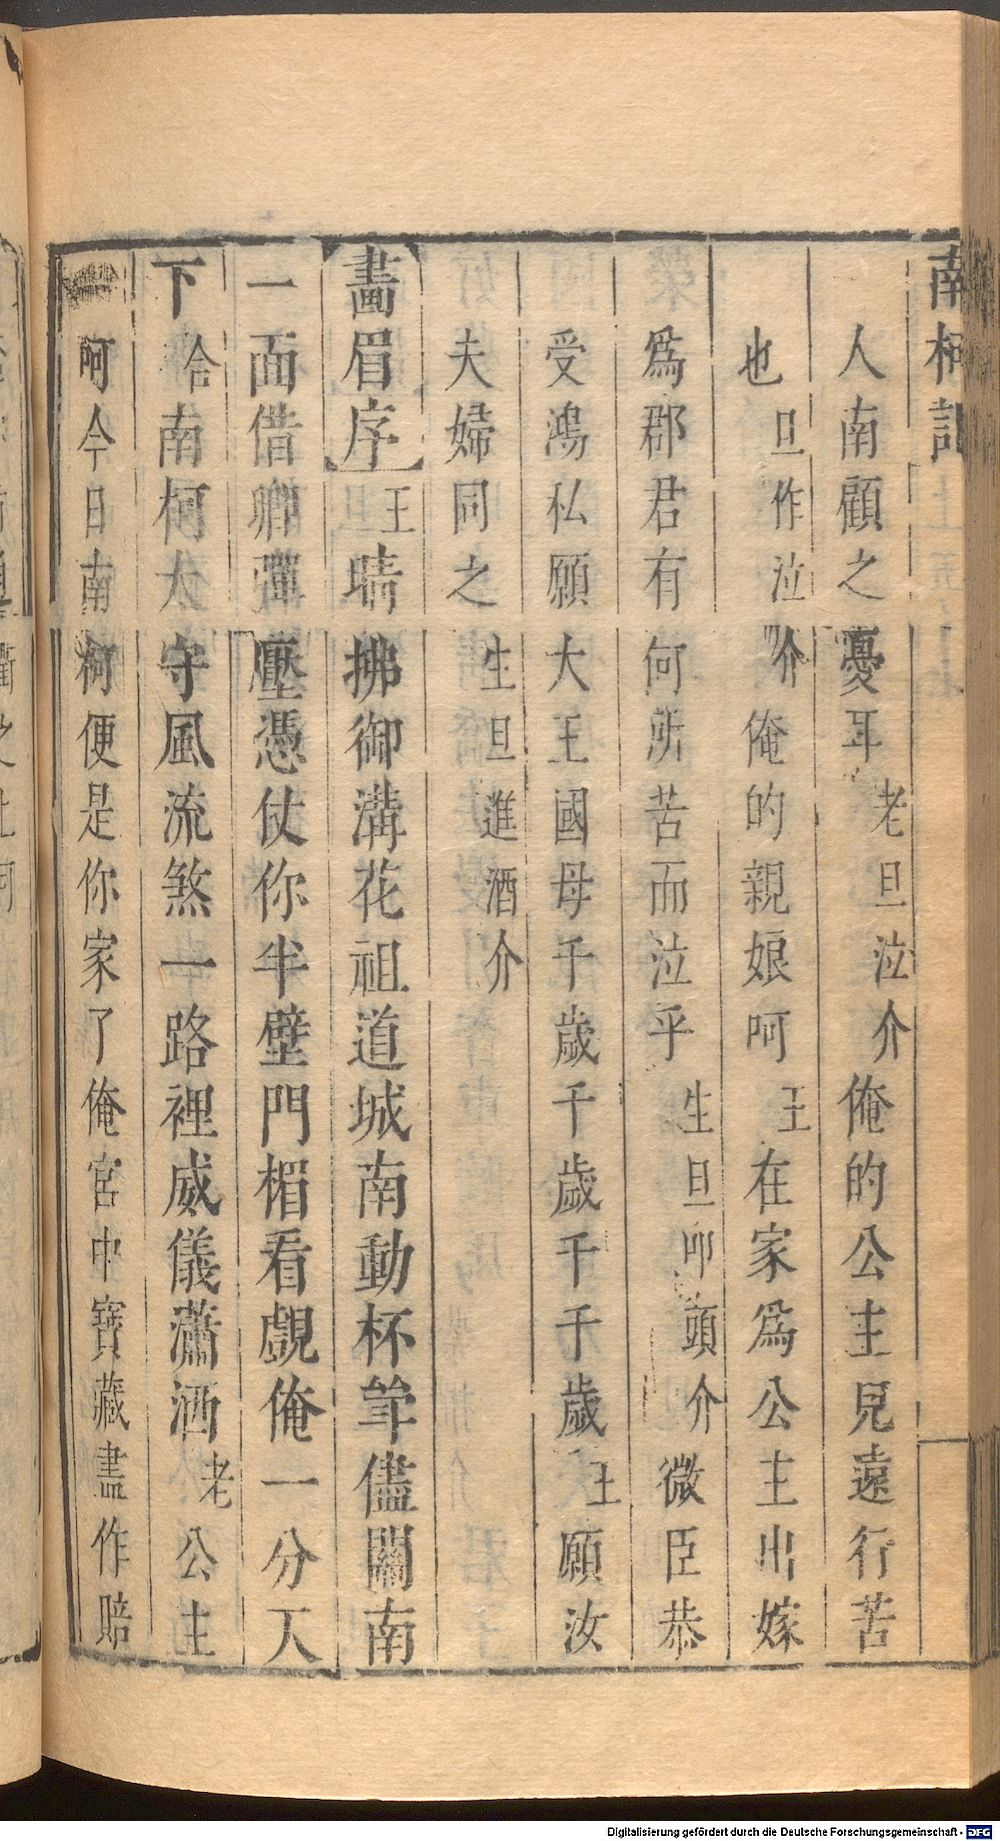 南柯記
人南顧之憂耳老旦泣介俺的公主兒遠行苦
也旦作泣介俺的親娘呵王在家爲公主出嫁
爲郡君有何所苦而泣乎生旦叩頭介微臣恭
受鴻私願大王國母千歲千歲千千歲王願汝
夫婦同之生旦進酒介
畵眉序王晴拂御溝花祖道城南動杯斝儘關南
一面借卿彈壓憑仗你半壁門楣看覷俺一分天
下合南柯太守風流煞一路裡威儀瀟洒老公主
呵今日南柯便是你家了俺宮中寶藏盡作賠
Digitalisierung gefördert durch die Deutsche Forschungsgemeinschaft - DFG